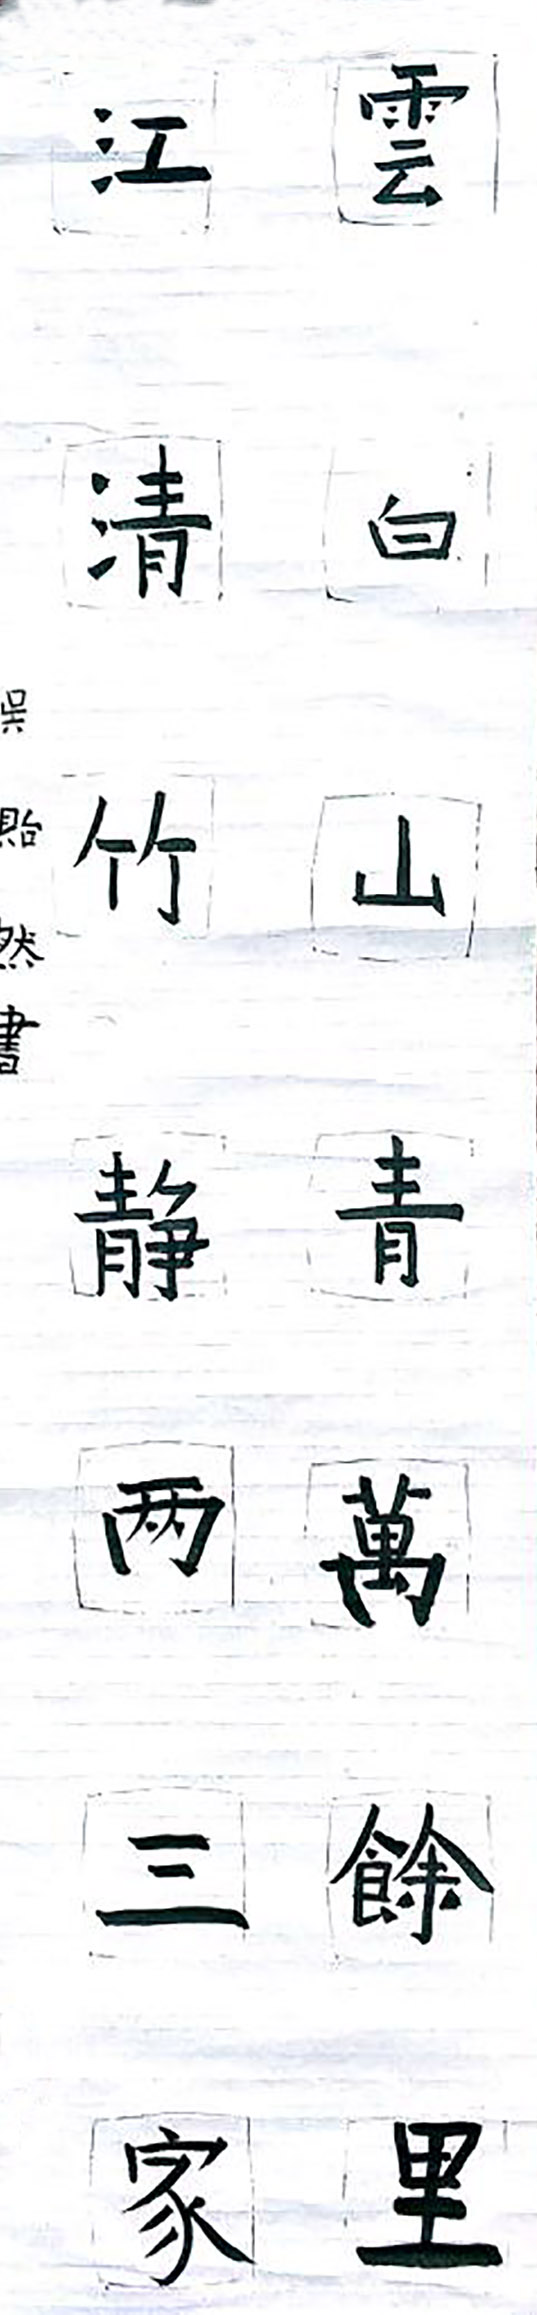 雲白山青萬餘里
江清竹静两三家
吳貽然書